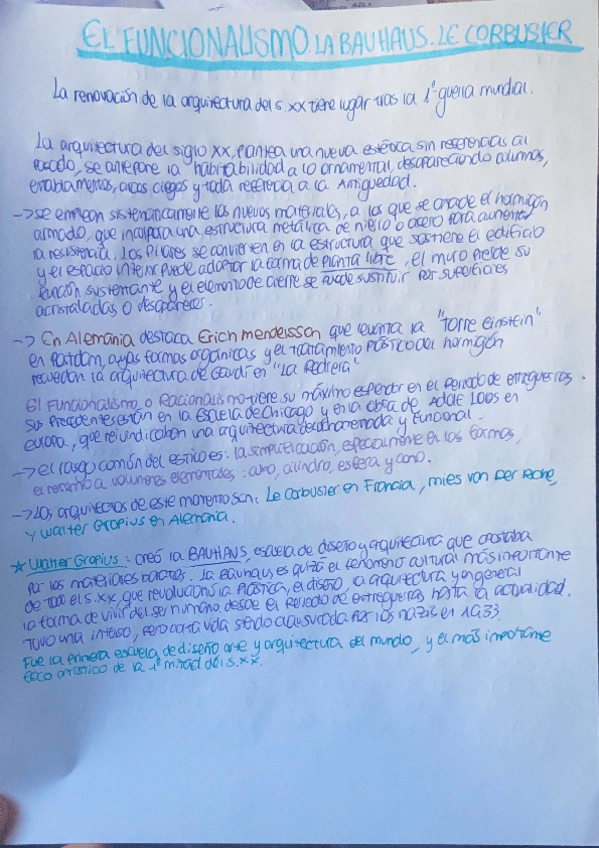 EL FUNCIONALISMO. LA BAUHAUS. LE CORBUSIER
La renovación de la arquitectura del s.XX tiene lugar tras la 1ª guerra mundial.
La arquitectura del siglo XX, plantea una nueva estética sin referencias al
pasado, se antepone la "habitabilidad a lo ornamental, desapareciendo columnas,
entablamentos, arcos ciegos y toda referencia a la Antiguedad.
-> se emplean sistemáticamente los nuevos materiales, a los que se añade el hormigón
armado, que incorpora una estructura metálica de hierro o acero para aumentar
la resistencia. Los Pilares se convierten en la estructura que sostiene el edificio
y el espacio interior puede adoptar la forma de planta libre, el muro pierde su
función sustentante y el elemento de cierre se puede sustituir por superficies
acristaladas o desaparecer.
-> En Alemania destaca Erich Mendelsson que la "Torre Einstein"
en Potdam, cuyas formas orgánicas y el tratamiento plástico del hormigón
recuerdan la arquitectura de Gaudí en "La Pedrera".
El Funcionalismo o Racionalismo tiene su máximo esplendor en el Periodo de entreguerras.
Sus precedentes están en la Escuela de Chicago y en la obra de Adolf Loos en
europa, que reivindicaban una arquitectura desornamentada y Funcional.
-> el rasgo común del estilo es: la simplificación, especialmente en las formas,
el retorno a volumenes elementales: cubo, cilindro, esfera y cono.
-> Los arquitectos de este momento son: Le Corbusier en Francia, mies van Der Rohe,
y Walter Gropius en Alemania.
★ Walter Gropius: creó la BAUHAUS, escuela de diseño y arquitectura que apostaba
por los materiales baratos. La Bauhaus es quizá el fenómeno cultural más importante
de todo el s.XX, que revolucionó la Plástica, el diseño, la arquitectura y en general
la forma de vivir del ser humano desde el Periodo de entreguerras hasta la actualidad.
Tuvo una intensa, pero corta vida siendo clausurada por los nazis en 1933.
Fue la primera escuela de diseño arte y arquitectura del mundo, y el más importante
foco artístico de la 1ª mitad del s.XX.